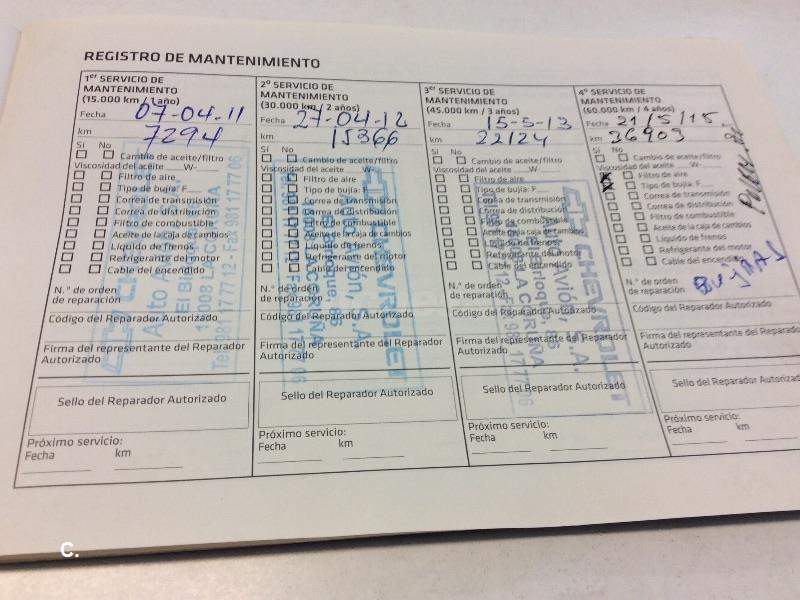 REGISTRO DE MANTENIMIENTO
1er SERVICIO DE
MANTENIMIENTO
(15.000 km / 1 año)
Fecha 07-04-11
km 7294
Sí No
Cambio de aceite/filtro
Viscosidad del aceite ___W-___
Filtro de aire
Tipo de bujía: F___
Correa de transmisión
Correa de distribución
Filtro de combustible
Aceite de la caja de cambios
Líquido de frenos
Refrigerante del motor
Cable del encendido
N.º de orden
de reparación
Código del Reparador Autorizado
Firma del representante del Reparador
Autorizado
Sello del Reparador Autorizado
Próximo servicio:
Fecha km
2º SERVICIO DE
MANTENIMIENTO
(30.000 km / 2 años)
Fecha 27-04-12
km 15366
Sí No
Cambio de aceite/filtro
Viscosidad del aceite ___W-___
Filtro de aire
Tipo de bujía: F___
Correa de transmisión
Correa de distribución
Filtro de combustible
Aceite de la caja de cambios
Líquido de frenos
Refrigerante del motor
Cable del encendido
N.º de orden
de reparación
Código del Reparador Autorizado
Firma del representante del Reparador
Autorizado
Sello del Reparador Autorizado
Próximo servicio:
Fecha km
3er SERVICIO DE
MANTENIMIENTO
(45.000 km / 3 años)
Fecha 15-5-13
km 22124
Sí No
Cambio de aceite/filtro
Viscosidad del aceite ___W-___
Filtro de aire
Tipo de bujía: F___
Correa de transmisión
Correa de distribución
Filtro de combustible
Aceite de la caja de cambios
Líquido de frenos
Refrigerante del motor
Cable del encendido
N.º de orden
de reparación
Código del Reparador Autorizado
Firma del representante del Reparador
Autorizado
Sello del Reparador Autorizado
Próximo servicio:
Fecha km
CHEVROLET
4º SERVICIO DE
MANTENIMIENTO
(60.000 km / 4 años)
Fecha 21/5/15
km 36903
Sí No
Cambio de aceite/filtro
Viscosidad del aceite ___W-___
Filtro de aire
Tipo de bujía: F___
Correa de transmisión
Correa de distribución
Filtro de combustible
Aceite de la caja de cambios
Líquido de frenos
Refrigerante del motor
Cable del encendido
N.º de orden
de reparación BUJIAS
Código del Reparador Autorizado
Firma del representante del Reparador
Autorizado
Sello del Reparador Autorizad
Próximo servicio:
Fecha km
C.